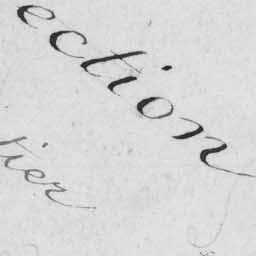 ection
tier